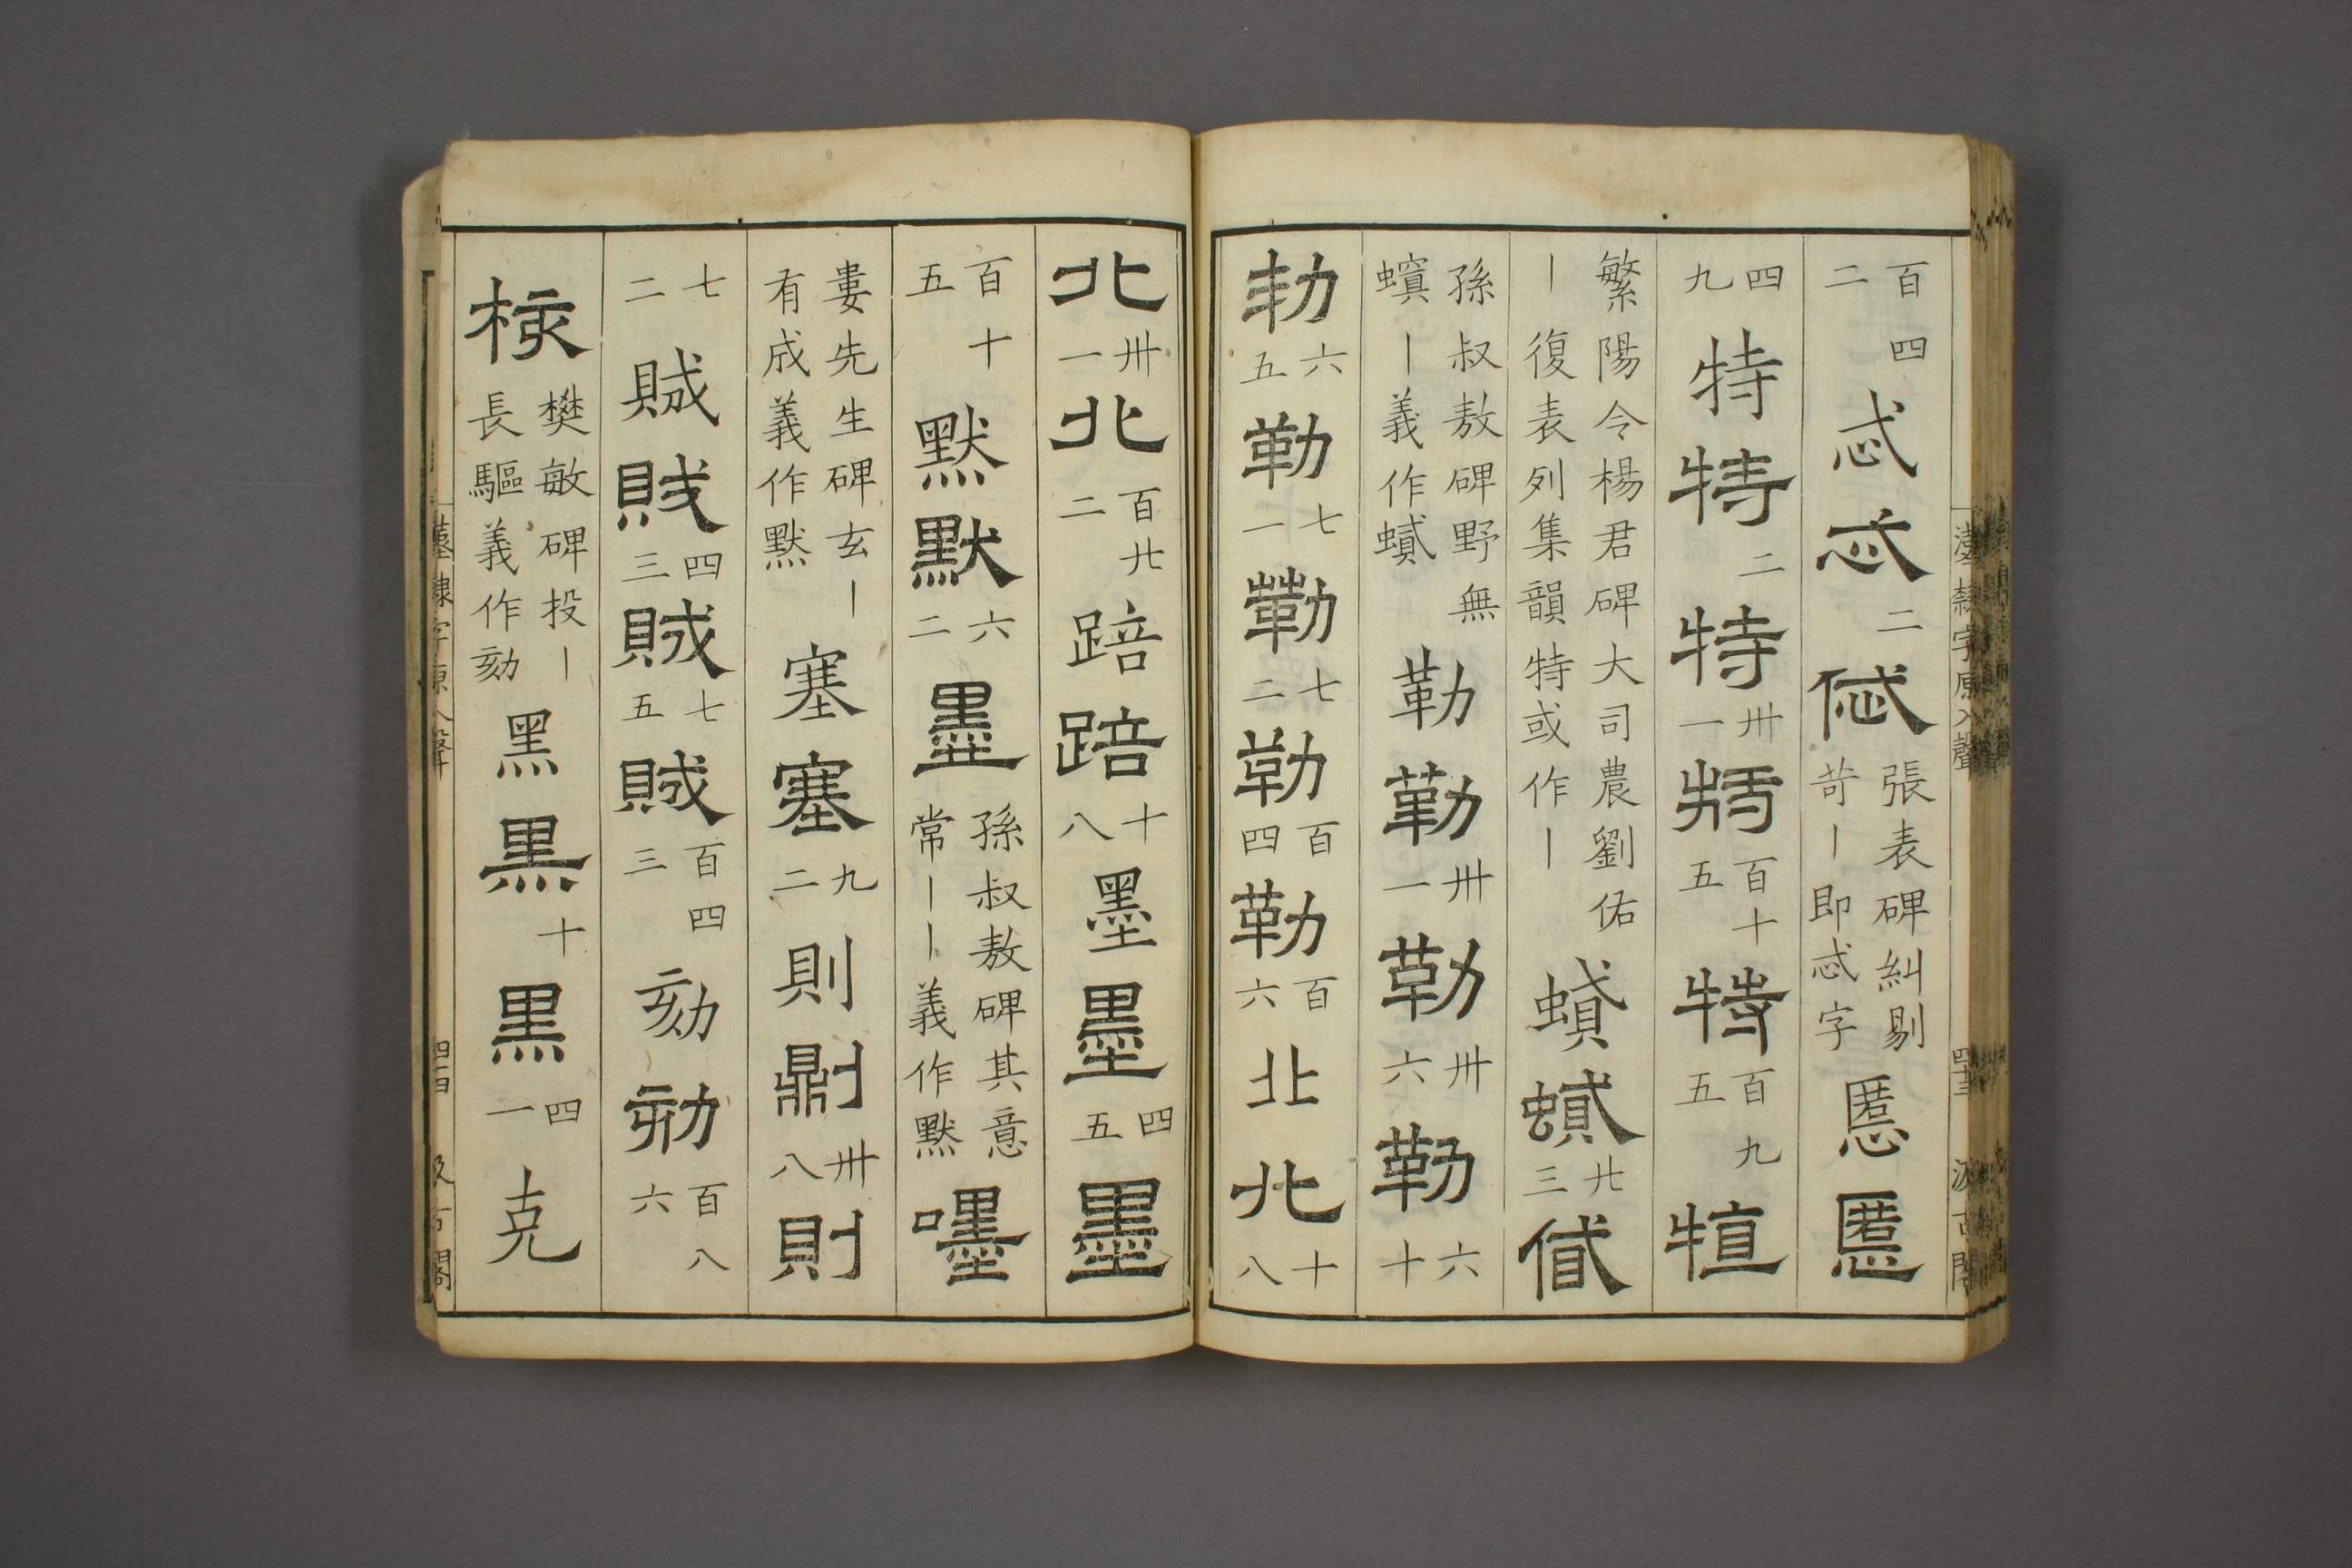 百四二忒忒二㥾張表碑糾剔苛丨即忒字慝慝
四九特特二特卅一特百十五特百九五犆
繁陽令楊君碑大司農劉佑丨復表列集韻特或作丨蟘蟘廿三貣
孫叔敖碑野無螟丨義作蟘勒勒卅一勒卅六勒六十
勒六五勒七一勒七二勒百四勒百六北北十八
漢隸字原入聲 四十三 汲古閣
北卅一北百廿二踣踣十八墨墨四五墨
百十五默默六二墨孫叔敖碑其意常丨丨義作默嚜
婁先生碑玄丨有成義作默塞塞九二則鼎刂卅八則
七二賊賊四三賊七五賊百四三劾劾百八六
核樊敏碑投丨長驅義作劾黑黑十黑四一克
漢隸字原入聲 汲古閣